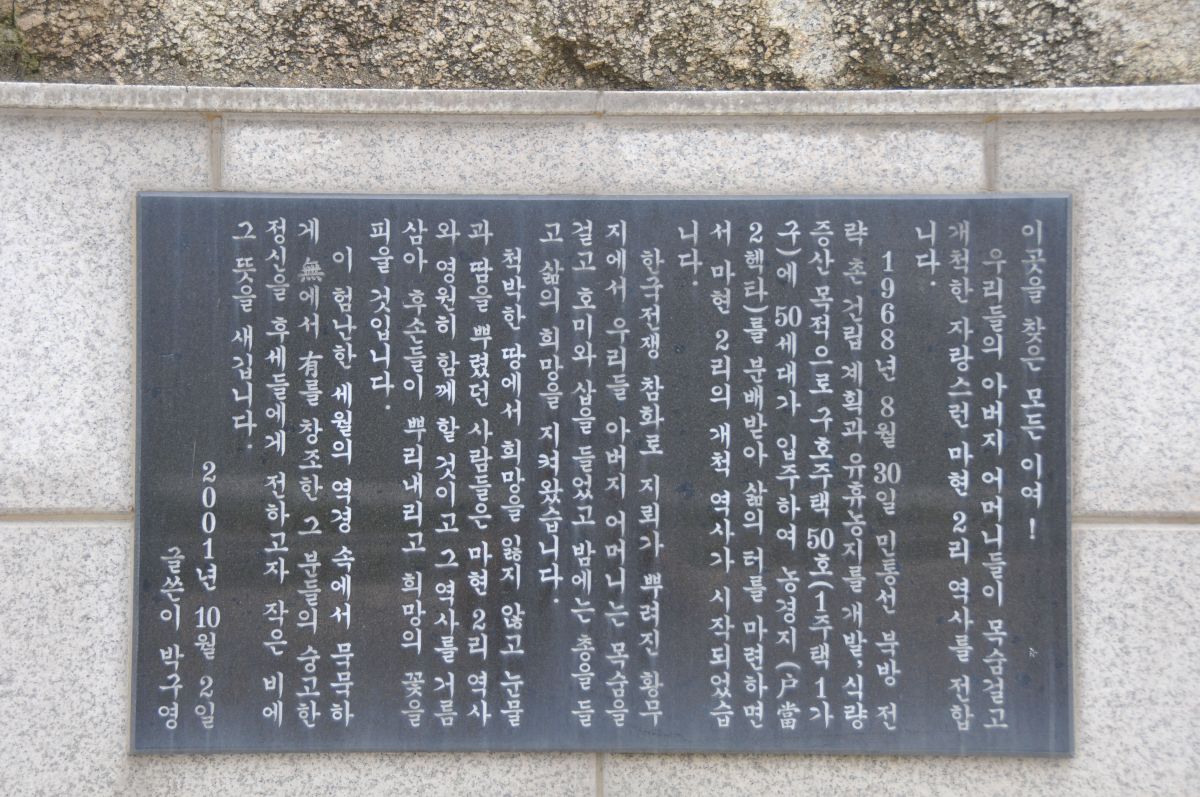 이곳을 찾은 모든 이여!
우리들의 아버지 어머니들이 목숨걸고
개척한 자랑스런 마현 2리 역사를 전합
니다.
1968년 8월 30일 민통선 북방 전
략촌 건립 계획과 유휴농지를 개발, 식량
증산 목적으로 구호주택 50호(1주택 1가
구)에 50세대가 입주하여 농경지 (户當
2헥타)를 분배받아 삶의 터를 마련하면
서 마현 2리의 개척 역사가 시작되었습
니다.
한국전쟁 참화로 지뢰가 뿌려진 황무
지에서 우리들 아버지 어머니는 목숨을
걸고 호미와 삽을 들었고 밤에는 총을 들
고 삶의 희망을 지켜왔습니다.
척박한 땅에서 희망을 잃지 않고 눈물
과 땀을 뿌렸던 사람들은 마현 2리 역사
와 영원히 함께 할 것이고 그 역사를 거름
삼아 후손들이 뿌리내리고 희망의 꽃을
피울 것입니다.
이 험난한 세월의 역경 속에서 묵묵하
게 無에서 有를 창조한 그 분들의 숭고한
정신을 후세들에게 전하고자 작은 비에
그 뜻을 새깁니다.
2001년 10월 2일
글쓴이 박구영